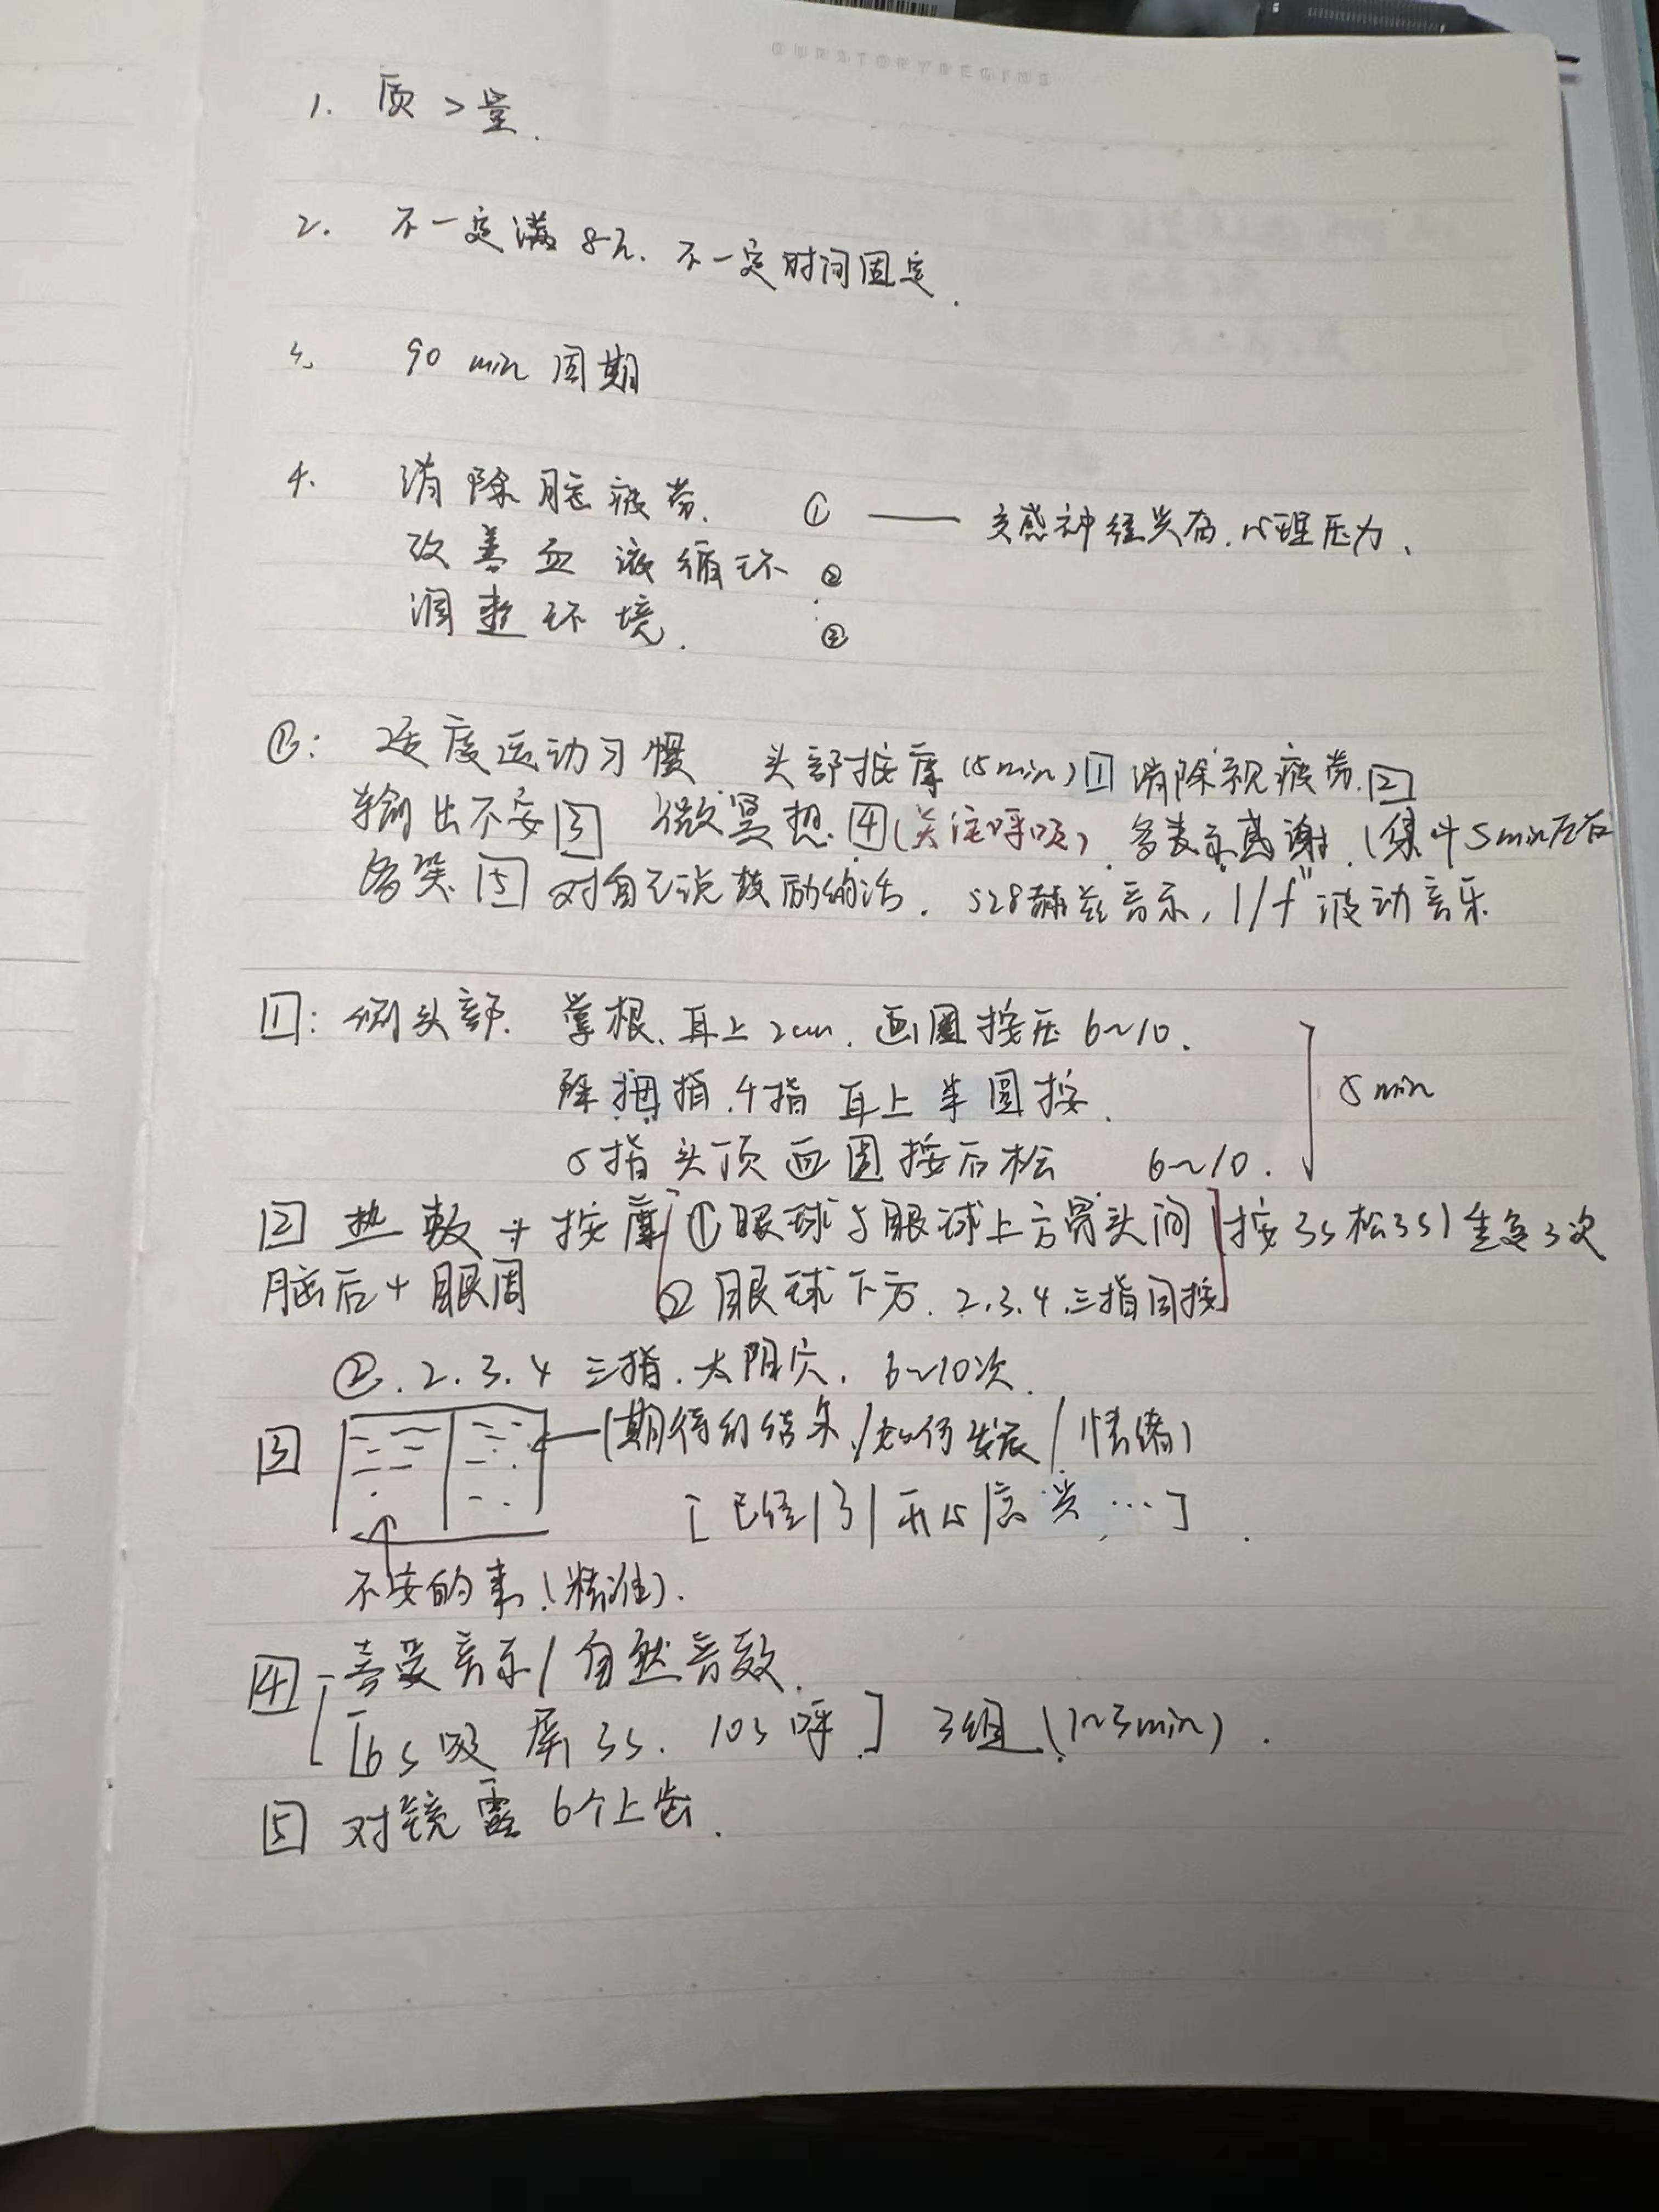 OURSTORYBEGINS
1. 质 > 量.
2. 不一定满 8h. 不一定时间固定.
3. 90 min 周期
4. 消除脑疲劳. ① —— 交感神经兴奋. 心理压力.
改善血液循环 ②
调整环境. ③
①: 适度运动习惯 头部按摩 (5min) 1 消除视疲劳. 2
输出不安 3 微冥想. 4 (关注呼吸). 多表示感谢. (集中5min左右
多笑. 5 对自己说鼓励的话. 528赫兹音乐, 1/f 波动音乐
1: 侧头部. 掌根. 耳上 2cm. 画圈按压 6~10.
除拇指. 4指 耳上半圆按. 5 min
5指头顶画圆按后松 6~10.
2 热敷 + 按摩 ① 眼球与眼球上方骨头间 按 3s 松 3s) 重复3次
脑后 + 眼周 ② 眼球下方. 2.3.4.三指同按
②. 2.3.4 三指. 太阳穴. 6~10次.
3 (期待的结果/如何发展/情绪)
[已经 … ]
不安的事 (精准).
4 享受音乐/自然音效.
[6s 吸 屏 3s. 10s 呼.] 3组 (1~3min).
5 对镜露 6个上齿.